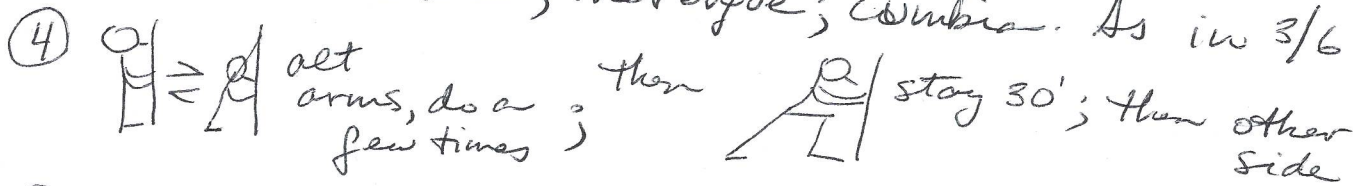 ; cumbia. As in 3/6
④ alt
arms, do a
few times ; then stay 30'; then other
side